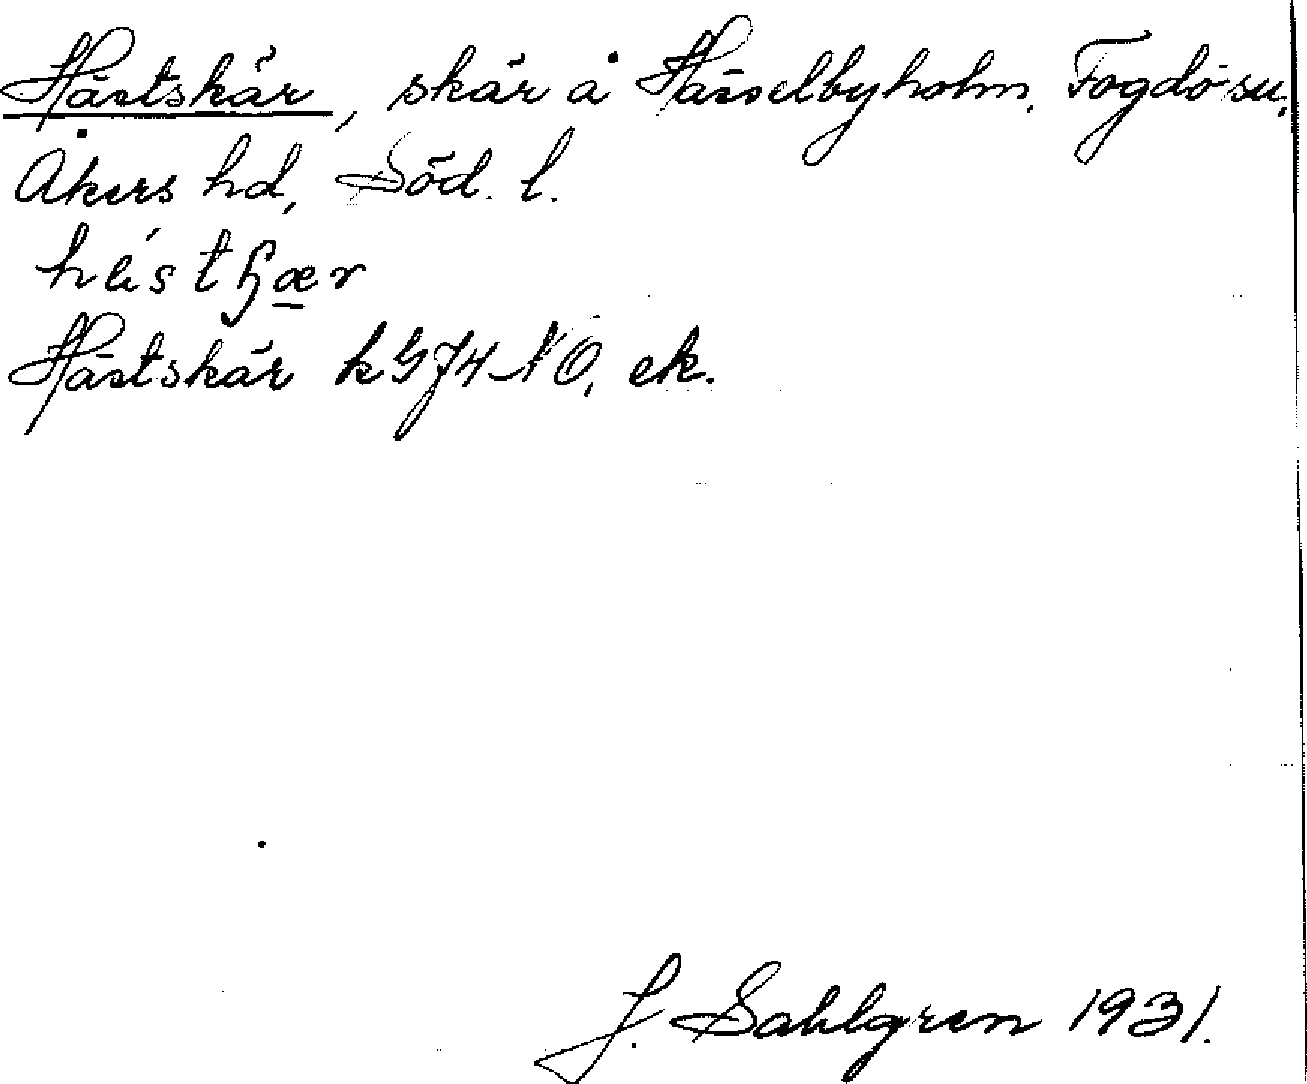 Hästskär, skär å Hässelbyholm, Fogdö sn,
Åkers hd, Söd. l.
Hästskär k 5 J4 NO, ek.
J. Sahlgren 1931.